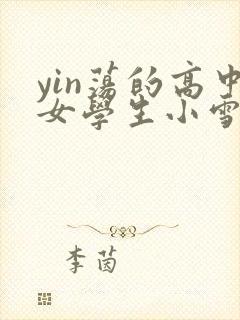 yin蕩的高中
女學生小雪
李茵